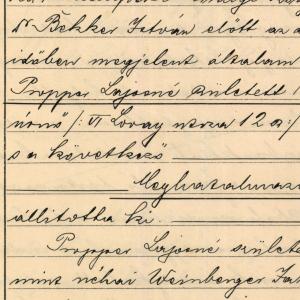 Dr Bekker István előtt az a
időben megjelent általam
Propper Lajosné született
nővő /: VI Lovay utcza 12 sz :/
s a következő
Meghatalmaz
állitotta ki.
Propper Lajosné születe
mint néhai Weinberger